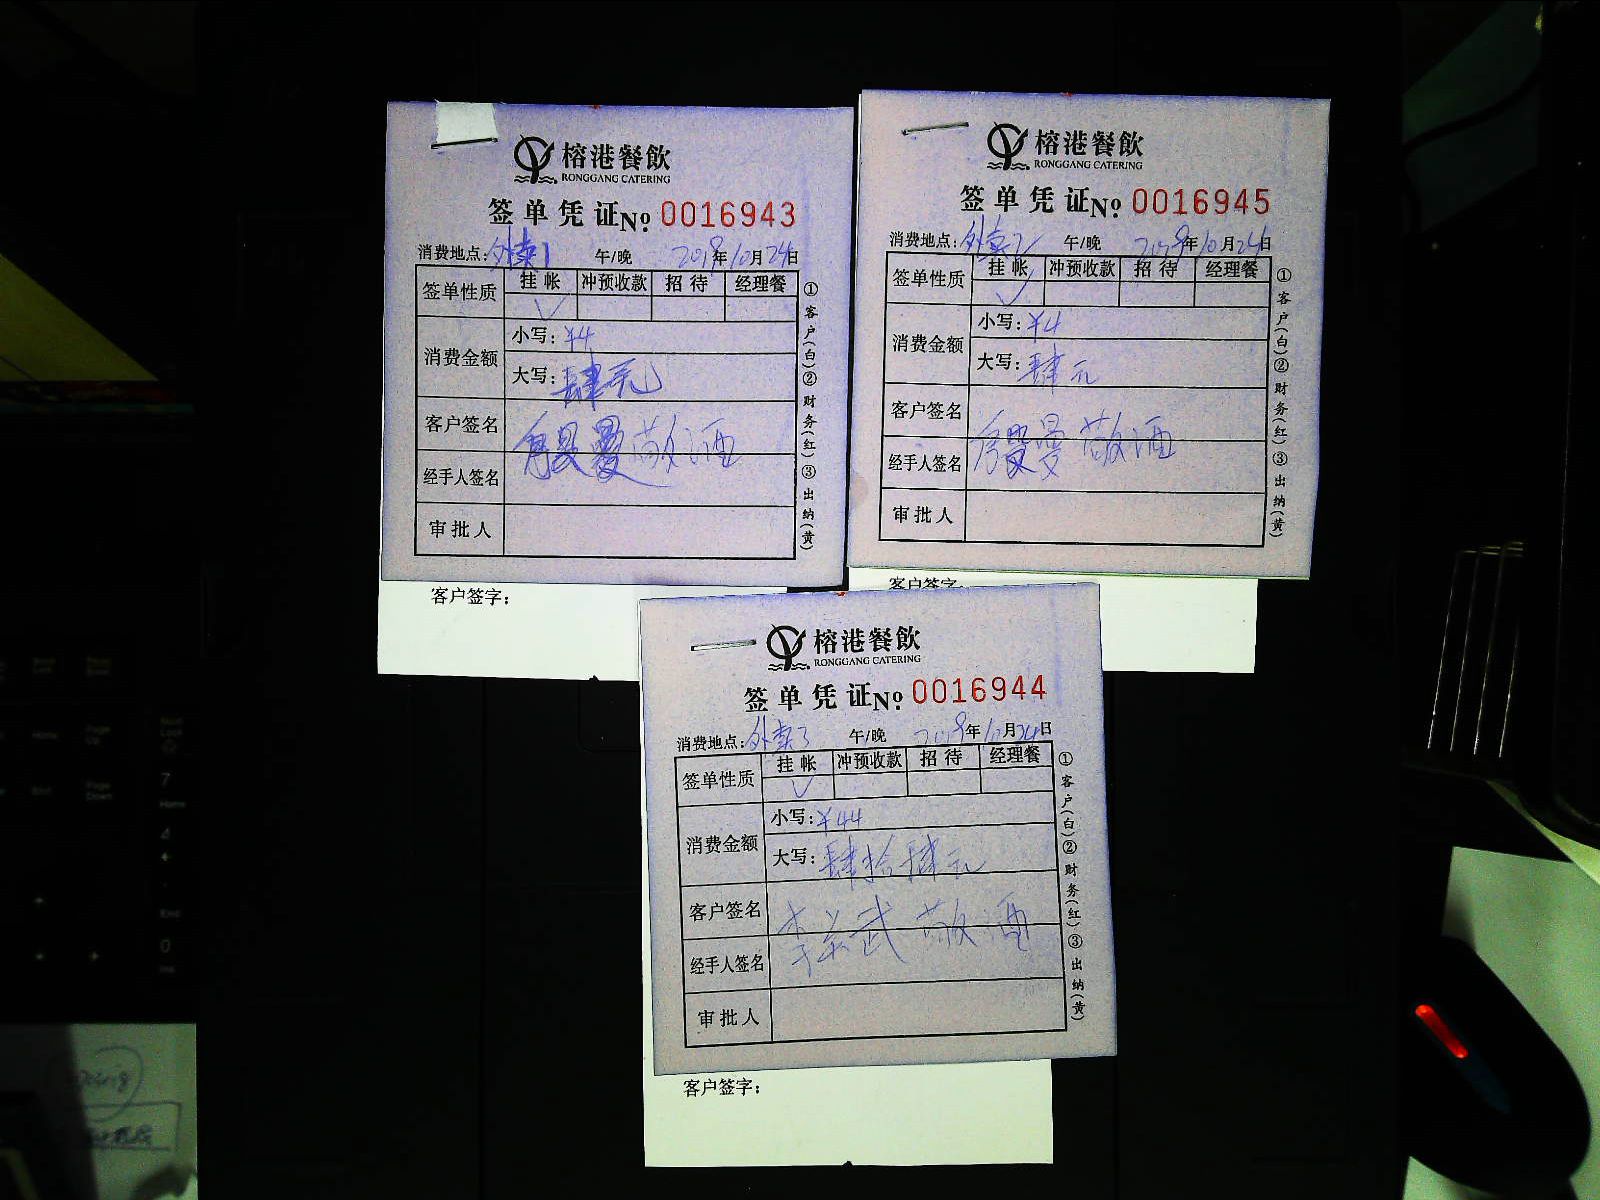 榕港餐飲
RONGGANG CATERING
签单凭证No. 0016943
消费地点: 外卖1 午/晚 2019年10月24日
签单性质 挂帐 冲预收款 招待 经理餐
✓
消费金额
小写: ¥4
大写: 肆元
客户签名
曼敬酒
经手人签名
审批人
①客户(白)②财务(红)③出纳(黄)
客户签字:
榕港餐飲
RONGGANG CATERING
签单凭证No. 0016945
消费地点: 外卖2 午/晚 2019年10月24日
签单性质 挂帐 冲预收款 招待 经理餐
✓
消费金额
小写: ¥4
大写: 肆元
客户签名
曼敬酒
经手人签名
审批人
①客户(白)②财务(红)③出纳(黄)
客户签字:
榕港餐飲
RONGGANG CATERING
签单凭证No. 0016944
消费地点: 外卖3 午/晚 2019年10月24日
签单性质 挂帐 冲预收款 招待 经理餐
✓
消费金额
小写: ¥44
大写: 肆拾肆元
客户签名
武敬酒
经手人签名
审批人
①客户(白)②财务(红)③出纳(黄)
客户签字: